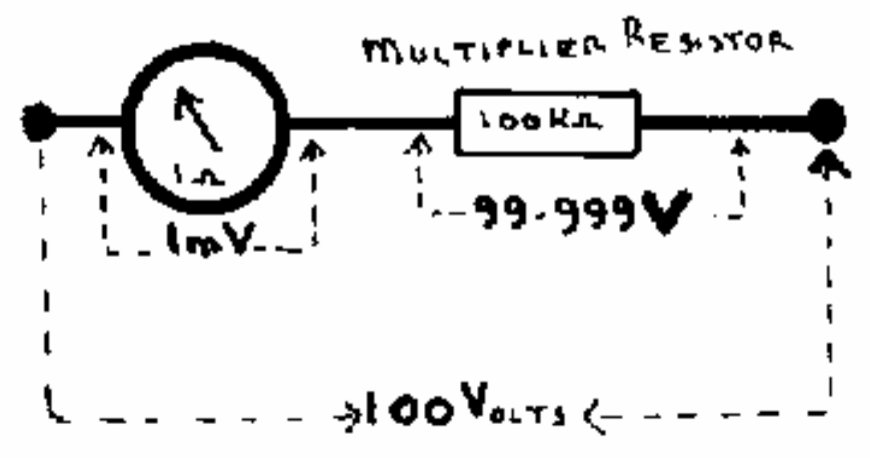 MULTIPLIER RESISTOR
100KΩ
1Ω
99.999V
1mV
100 VOLTS